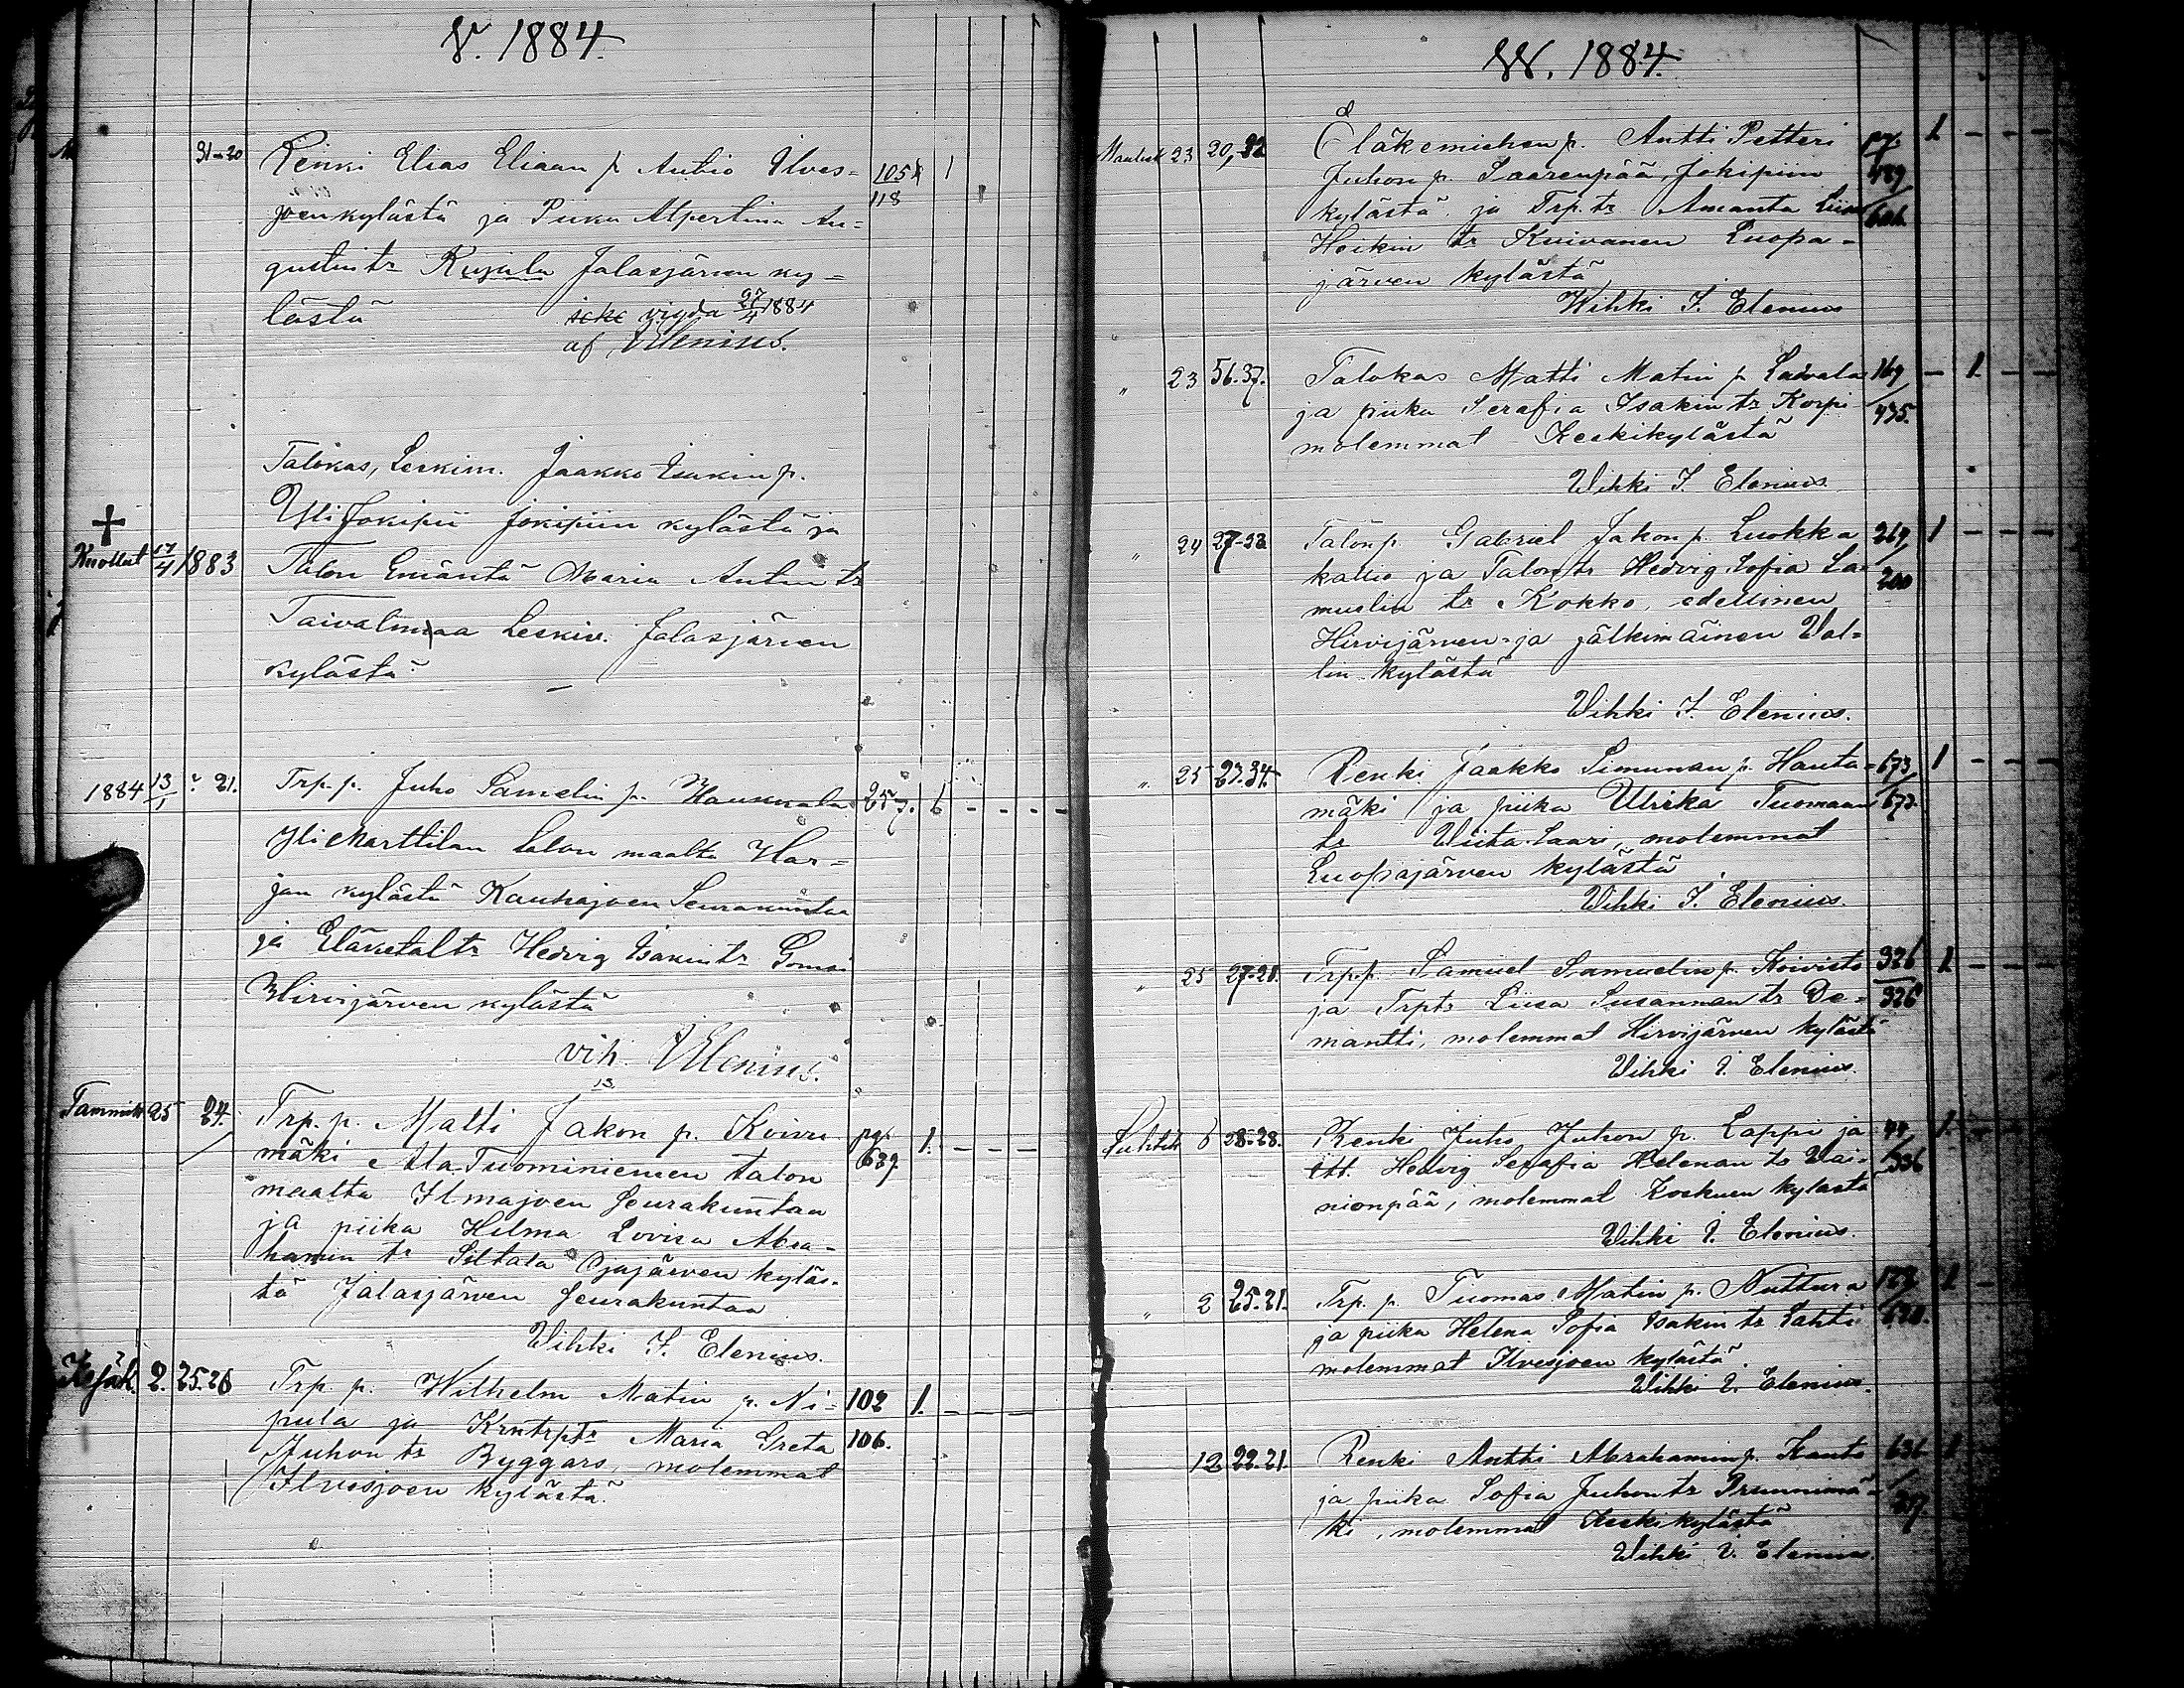 V. 1884.
31-20 Renki Elias Eliaan p Autio Ilves= 105 1
joenkylästä ja Piika Alpertina Au= 118
gustin tr Kujala Jalasjärven ky=
lästä icke vigda 27/4 1884
af Elenius.
Talokas, Leskim. Jaakko Isakin p.
YliJokipii Jokipiin kylästä ja
Kuollut 17/4 1883 Talon Emäntä Maria Antin tr
Taivalmaa Leskiv. Jalasjärven
kylästä
1884 13/1 21. Trp. p. Juho Samelin p. Haukkala 257. 6 - - - -
YliMarttilan talon maalta Har=
jan kylästä Kauhajoen Seurakuntaa
ja Eläketal tr Hedvig Isakin tr
Hirvijärven kylästä
vih. Elenius.
13
Tammik 25 24. Trp. p. Matti Jakon p. Koivu pg. 1. - - -
mäki Ala-Tuominiemen talon 689.
maalta Ilmajoen Seurakuntaa
ja piika Hilma Lovisa Abra-
hamin tr Siltala Ojajärven kyläs-
tä Jalasjärven Seurakuntaa
Vihki I. Elenius.
Kesäk. 2. 25.26 Trp. p. Wilhelm Matin p. Ni= 102 1. - - -
pula ja Krntrptr Maria Greta 106.
Juhon tr Byggars, molemmat
Ilvesjoen kylästä.
W. 1884.
Maalisk 23 20,22 Eläkemiehen p. Antti Petteri 1 - - -
Juhon p. Saarenpää, Jokipiin 489
kylästä ja Trp. tr Amanta Liisa 606
Heikin tr Kuivanen Luopa-
järven kylästä
Wihki I. Elenius
" 23 56.37. Talokas Matti Matin p. Laivala 169 - 1. - -
ja piika Serafia Isakin tr Korpi 435.
molemmat Keskikylästä
Vihki I. Elenius.
" 24 27-23 Talon p. Gabriel Jakon p. Luokka 269 1 - - -
kallio ja Talon tr Hedvig Sofia Sa= 200
muelin tr Kokko, edellinen
Hirvijärven- ja jälkimäinen Wal=
lin kylästä
Vihki I. Elenius.
" 25 23.34. Renki Jaakko Simunan p. Hauta= 673 1 - - -
mäki ja piika Ulrika Tuomaan 673.
tr Viitasaari, molemmat
Luopajärven kylästä.
Vihki I. Elenius.
" 25 27-21. Trp.p. Samuel Samuelin p. Koivisto 326 1 - - -
ja Trptr Liisa Susannan tr De= 326
mantti, molemmat Hirvijärven kylästä
Vihki I. Elenius.
Huhtik 6 28-28. Renki Juho Juhon p. Lappi ja 44 1. - - -
itt. Hedvig Serafia Helenan tr Vai= 536
nionpää, molemmat Koskuen kylästä
Vihki I. Elenius.
" 2 25.21. Trp. p. Tuomas Matin p. Nuttura 122 1 -
ja piika Helena Sofia Isakin tr Lahti 620.
molemmat Ilvesjoen kylästä.
Vihki I. Elenius.
12 22.21. Renki Antti Abrahamin p. Kanto 636 1
ja piika Sofia Juhon tr Prunnimä-
ki, molemmat Keskikylästä
Vihki I. Elenius.